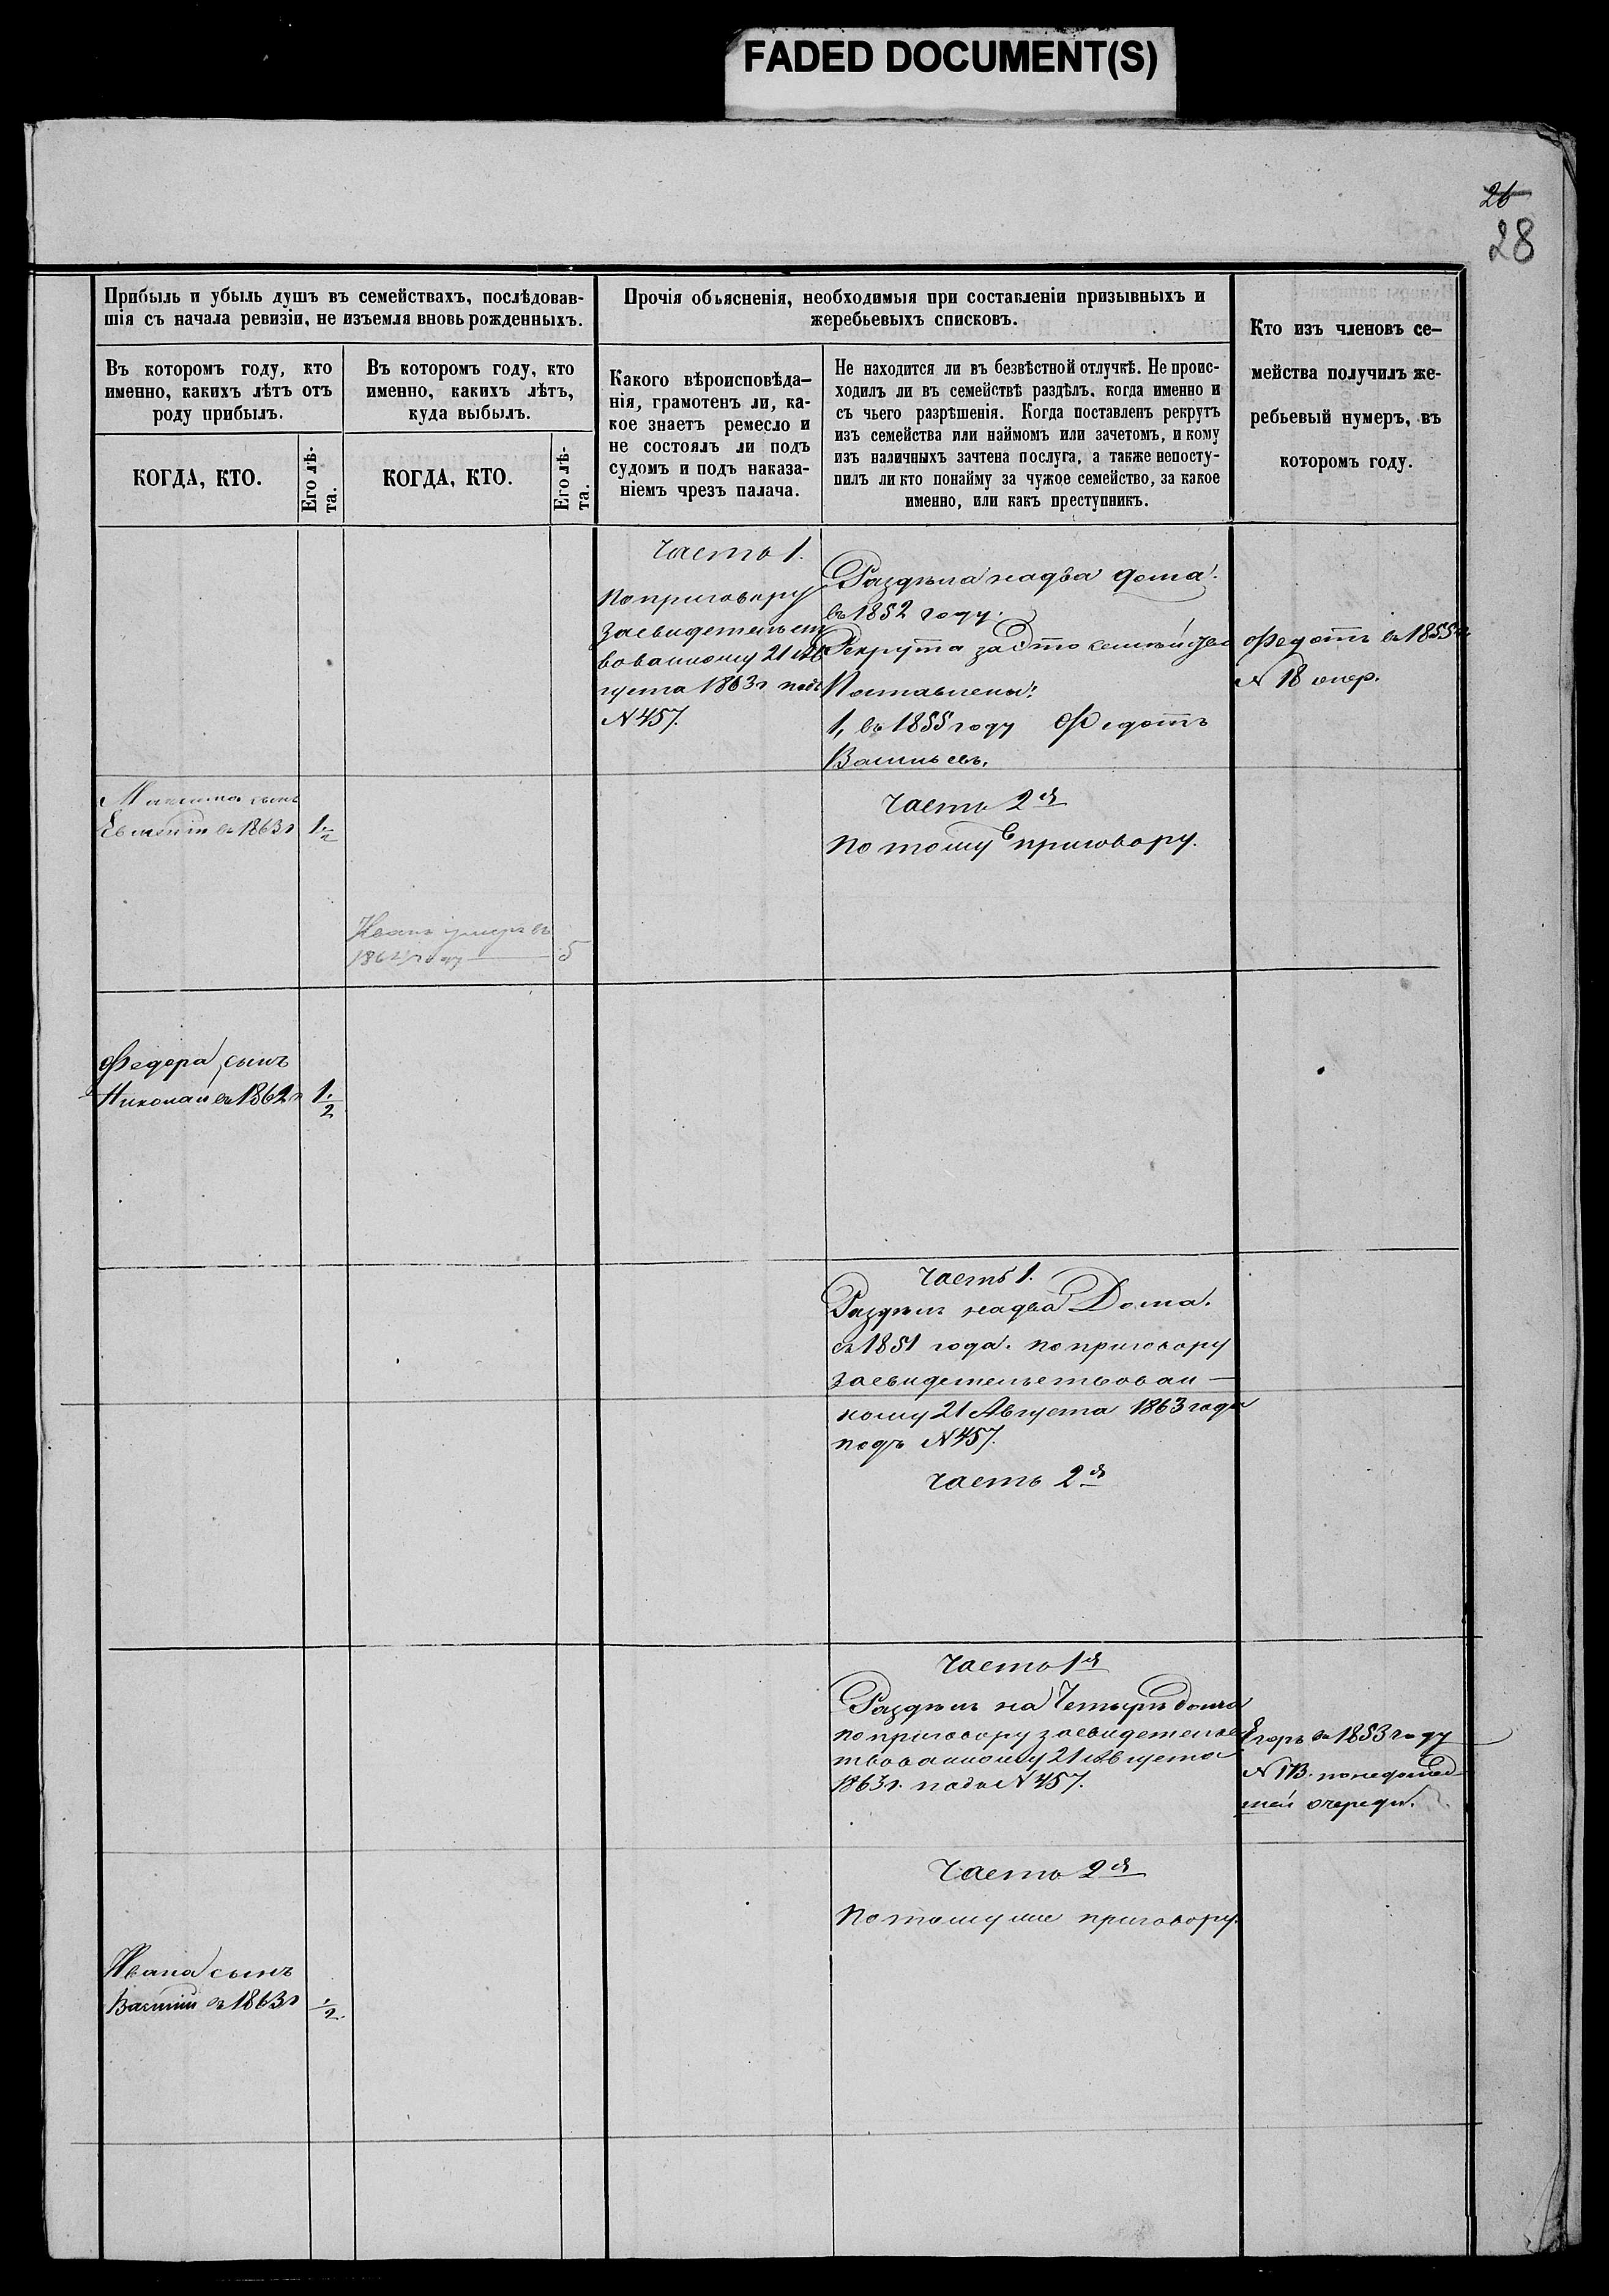 FADED DOCUMENT(S)
26
28
Прибыль и убыль душъ въ семействахъ, послѣдовав-
шія съ начала ревизіи, не изъемля вновь рожденныхъ.
Въ которомъ году, кто
именно, какихъ лѣтъ отъ
роду прибылъ.
КОГДА, КТО.
Его лѣ-
та.
Въ которомъ году, кто
именно, какихъ лѣтъ,
куда выбылъ.
КОГДА, КТО.
Его лѣ-
та.
Прочія обьясненія, необходимыя при составленіи призывныхъ и
жеребьевыхъ списковъ.
Какого вѣроисповѣда-
нія, грамотенъ ли, ка-
кое знаетъ ремесло и
не состоялъ ли подъ
судомъ и подъ наказа-
ніемъ чрезъ палача.
Не находится ли въ безвѣстной отлучкѣ. Не проис-
ходилъ ли въ семействѣ раздѣлъ, когда именно и
съ чьего разрѣшенія. Когда поставленъ рекрутъ
изъ семейства или наймомъ или зачетомъ, и кому
изъ наличныхъ зачтена послуга, а также непосту-
пилъ ли кто понайму за чужое семейство, за какое
именно, или какъ преступникъ.
Кто изъ членовъ се-
мейства получилъ же-
ребьевый нумеръ, въ
которомъ году.
Часть 1.
По приговору
засвидетельст
вованному 21 Ав
густа 1863 г подъ
N 457.
Раздѣла на два дома.
въ 1852 году.
Рекрута за это семейство
Поставлены:
1, въ 1855 году Федотъ
Васильевъ.
Федотъ въ 1855 г
N 18 очер.
сынъ
въ 1863 г 1/2
Часть 2я
По тому приговору.
Иванъ умеръ въ
году 5
Федора сынъ
Николай въ 1862 г 1/2
Часть 1.
Раздѣлъ на два Дома.
съ 1851 года. по приговору
засвидетельствован-
ному 21 Августа 1863 года
подъ N 457.
Часть 2я
Часть 1я
Раздѣлъ на Четыре дома
по приговору засвидетельс
твованному 21 Августа
1863 г. подъ N 457.
Егоръ въ 1853 году
N 173. по недошед-
шей очереди.
Часть 2я
По тому же приговору.
Ивана сынъ
Василій въ 1863 г 1/2.